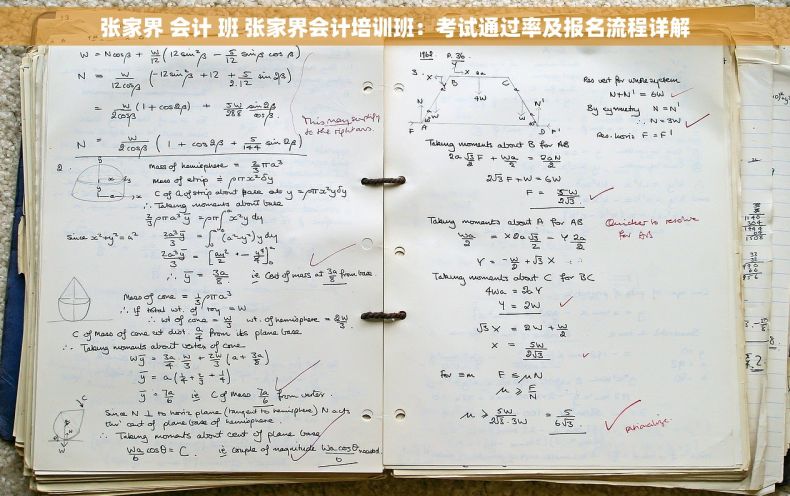 张家界 会计 班 张家界会计培训班：考试通过率及报名流程详解
W = Ncosβ + W/12 (12sin²β - 5/12 sinβ cosβ)
N = W/12cosβ (-12sin²β + 12 + 5/2.12 sin2β)
= W/2cosβ (1 + cos2β) + 5W/288 sin2β/cosβ
This may simplify to the right ans.
N = W/2cosβ (1 + cos2β + 5/144 sin2β)
2.
Mass of hemisphere = 2/3 πρa³
Mass of strip = ρπx²δy
C of A of strip about base ads y = ρπx²yδy
∴ Taking moments about base
2/3 ρπa³ȳ = ρπ∫x²y dy
Since x²+y²=a²
2a³ȳ/3 = ∫(a²-y²)y dy
∴ ȳ = 3a/8 ie Cent of mass at 3a/8 from base.
Mass of cone = 1/3 ρπa³
∴ If total wt. of toy = W
∴ wt of cone = W/3 wt. of hemisphere = 2W/3
C of Mass of cone at dist. a/4 from its plane base.
∴ Taking moments about vertex of cone.
Wȳ = 3a/4 W/3 + 2W/3 (a + 3a/8)
ȳ = a(1/4 + 2/3 + 1/4)
ȳ = 7a/6 ie C of Mass 7a/6 from vertex.
Since N ⊥ to horiz plane (tangent to hemisphere) N acts
thro' cent of plane base of hemisphere.
∴ Taking moments about cent of plane base
Wa/6 cosθ = C. ie couple of magnitude Wa cosθ/6 needed.
1968 P. 36.
3.
Res vert for whole system
N+N' = 6W
By symmetry N = N'
∴ N = 3W
Res. horiz F = F'
Taking moments about B for AB
2√3 F + W = 6W
F = 5W/2√3
Taking moments about A for AB
Quicker to resolve
for AB
Wa/2 = X 2a√3/2 - Y 2a/2
Y = -W/2 + √3 X
Taking moments about C for BC
4Wa = 2aY
Y = 2W
√3 X = 2W + W/2
X = 5W/2√3
for =m F ≤ μN
μ ≥ F/N
μ ≥ 5W/2√3.3W = 5/6√3
rationalize